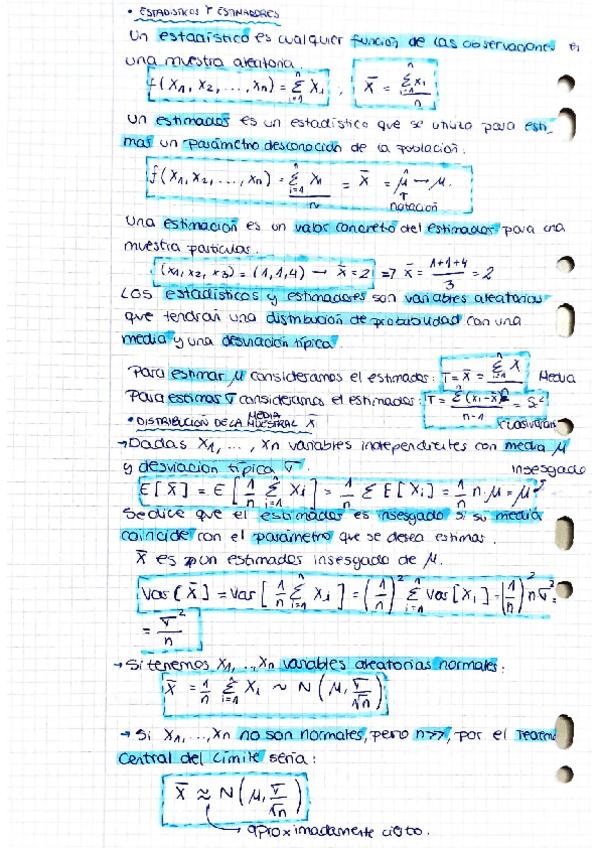 • ESTADISTICOS Y ESTIMADORES
Un estadístico es cualquier función de las observaciones en
una muestra aleatoria.
f(X1, X2, ..., Xn) = Σ_{i=1}^{n} Xi , X̄ = Σ_{i=1}^{n} Xi / n
Un estimador es un estadístico que se utiliza para esti-
mar un parámetro desconocido de la población.
f(X1, X2, ..., Xn) = Σ_{i=1}^{n} Xi / n = X̄ = μ̂ → μ.
notación
Una estimación es un valor concreto del estimador para una
muestra particular.
(x1, x2, x3) = (1,1,4) → X̄ = 2 => X̄ = (1+1+4)/3 = 2
Los estadísticos y estimadores son variables aleatorias
que tendrán una distribución de probabilidad con una
media y una desviación típica.
Para estimar μ consideramos el estimador: T = X̄ = Σ_{i=1}^{n} X / n Media
Para estimar σ consideramos el estimador: T = Σ(xi - x̄)² / (n-1) = S²
• DISTRIBUCIÓN DE LA MEDIA MUESTRAL X̄
→ Dadas X1, ..., Xn variables independientes con media μ
y desviación típica σ. insesgado
E[X̄] = E[1/n Σ_{i=1}^{n} Xi] = 1/n Σ E[Xi] = 1/n n.μ = μ
Se dice que el estimador es insesgado si su media
coincide con el parámetro que se desea estimar.
X̄ es un estimador insesgado de μ.
Var[X̄] = Var[1/n Σ_{i=1}^{n} Xi] = (1/n)² Σ_{i=1}^{n} Var[Xi] = (1/n)² nσ² =
= σ²/n
→ Si tenemos X1, ..., Xn variables aleatorias normales.
X̄ = 1/n Σ_{i=1}^{n} Xi ~ N(μ, σ/√n)
→ Si X1, ..., Xn no son normales, pero n>>, por el Teorema
Central del Límite sería:
X̄ ≈ N(μ, σ/√n)
→ aproximadamente cierto.